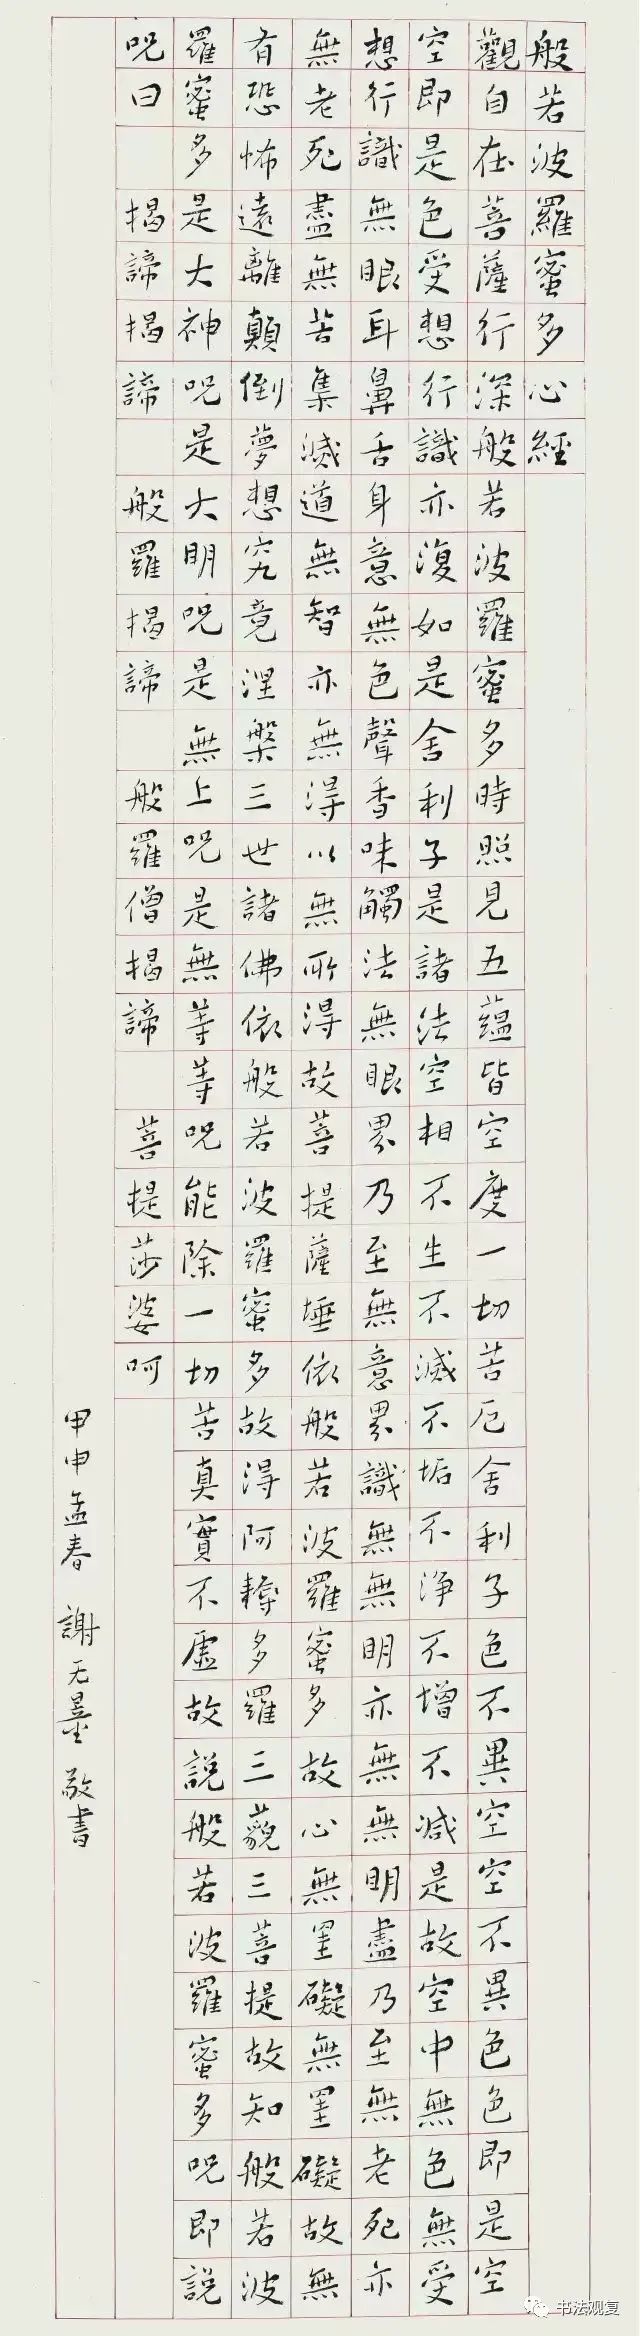 般若波羅蜜多心經
觀自在菩薩行深般若波羅蜜多時照見五蘊皆空度一切苦厄舍利子色不異空空不異色色即是空
空即是色受想行識亦復如是舍利子是諸法空相不生不滅不垢不淨不增不減是故空中無色無受
想行識無眼耳鼻舌身意無色聲香味觸法無眼界乃至無意界識無無明亦無無明盡乃至無老死亦
無老死盡無苦集滅道無智亦無得以無所得故菩提薩埵依般若波羅蜜多故心無罣礙無罣礙故無
有恐怖遠離顛倒夢想究竟涅槃三世諸佛依般若波羅蜜多故得阿耨多羅三藐三菩提故知般若波
羅蜜多是大神呪是大明呪是無上呪是無等等呪能除一切苦真實不虛故說般若波羅蜜多呪即說
呪曰 揭諦揭諦 般羅揭諦 般羅僧揭諦 菩提莎婆呵
甲申孟春 謝无量 敬書
书法观复